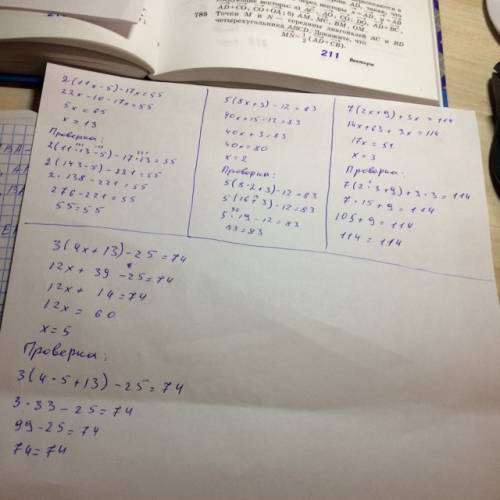 AD+CO, CO+OA; б) AM, MC, BM, OM
785 Точки M и N — середины диагоналей AC и BD
четырёхугольника ABCD. Докажите, что
MN=½(AD+CB).
211 Векторы
2(11x-5)-17x=55
22x-10-17x=55
5x=65
x=13
Проверка:
2(11·13-5)-17·13=55
2(143-5)-221=55
2·138-221=55
276-221=55
55=55
5(8x+3)-12=83
40x+15-12=83
40x+3=83
40x=80
x=2
Проверка:
5(8·2+3)-12=83
5(16+3)-12=83
5·19-12=83
83=83
7(2x+9)+3x=114
14x+63+3x=114
17x=51
x=3
Проверка:
7(2·3+9)+3·3=114
7·15+9=114
105+9=114
114=114
3(4x+13)-25=74
12x+39-25=74
12x+14=74
12x=60
x=5
Проверка:
3(4·5+13)-25=74
3·33-25=74
99-25=74
74=74